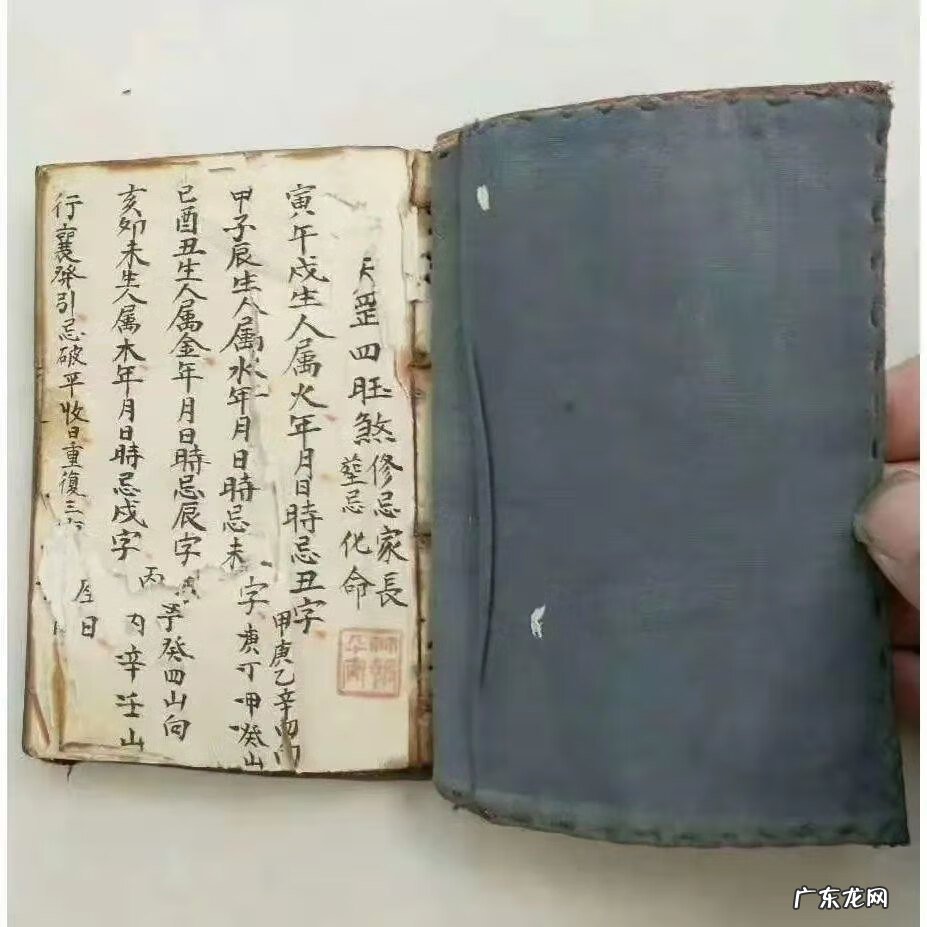 天罡四旺煞修忌家長
塟忌化命
寅午戍生人属火年月日時忌丑字
甲庚乙辛四向
甲子辰生人属水年月日時忌未字庚丁甲癸山
巳酉丑生人属金年月日時忌辰字
癸四山向
亥卯未生人属木年月日時忌戍字
丙
丙辛壬山
行襄發引忌破平收日重復三
日
广东龙网